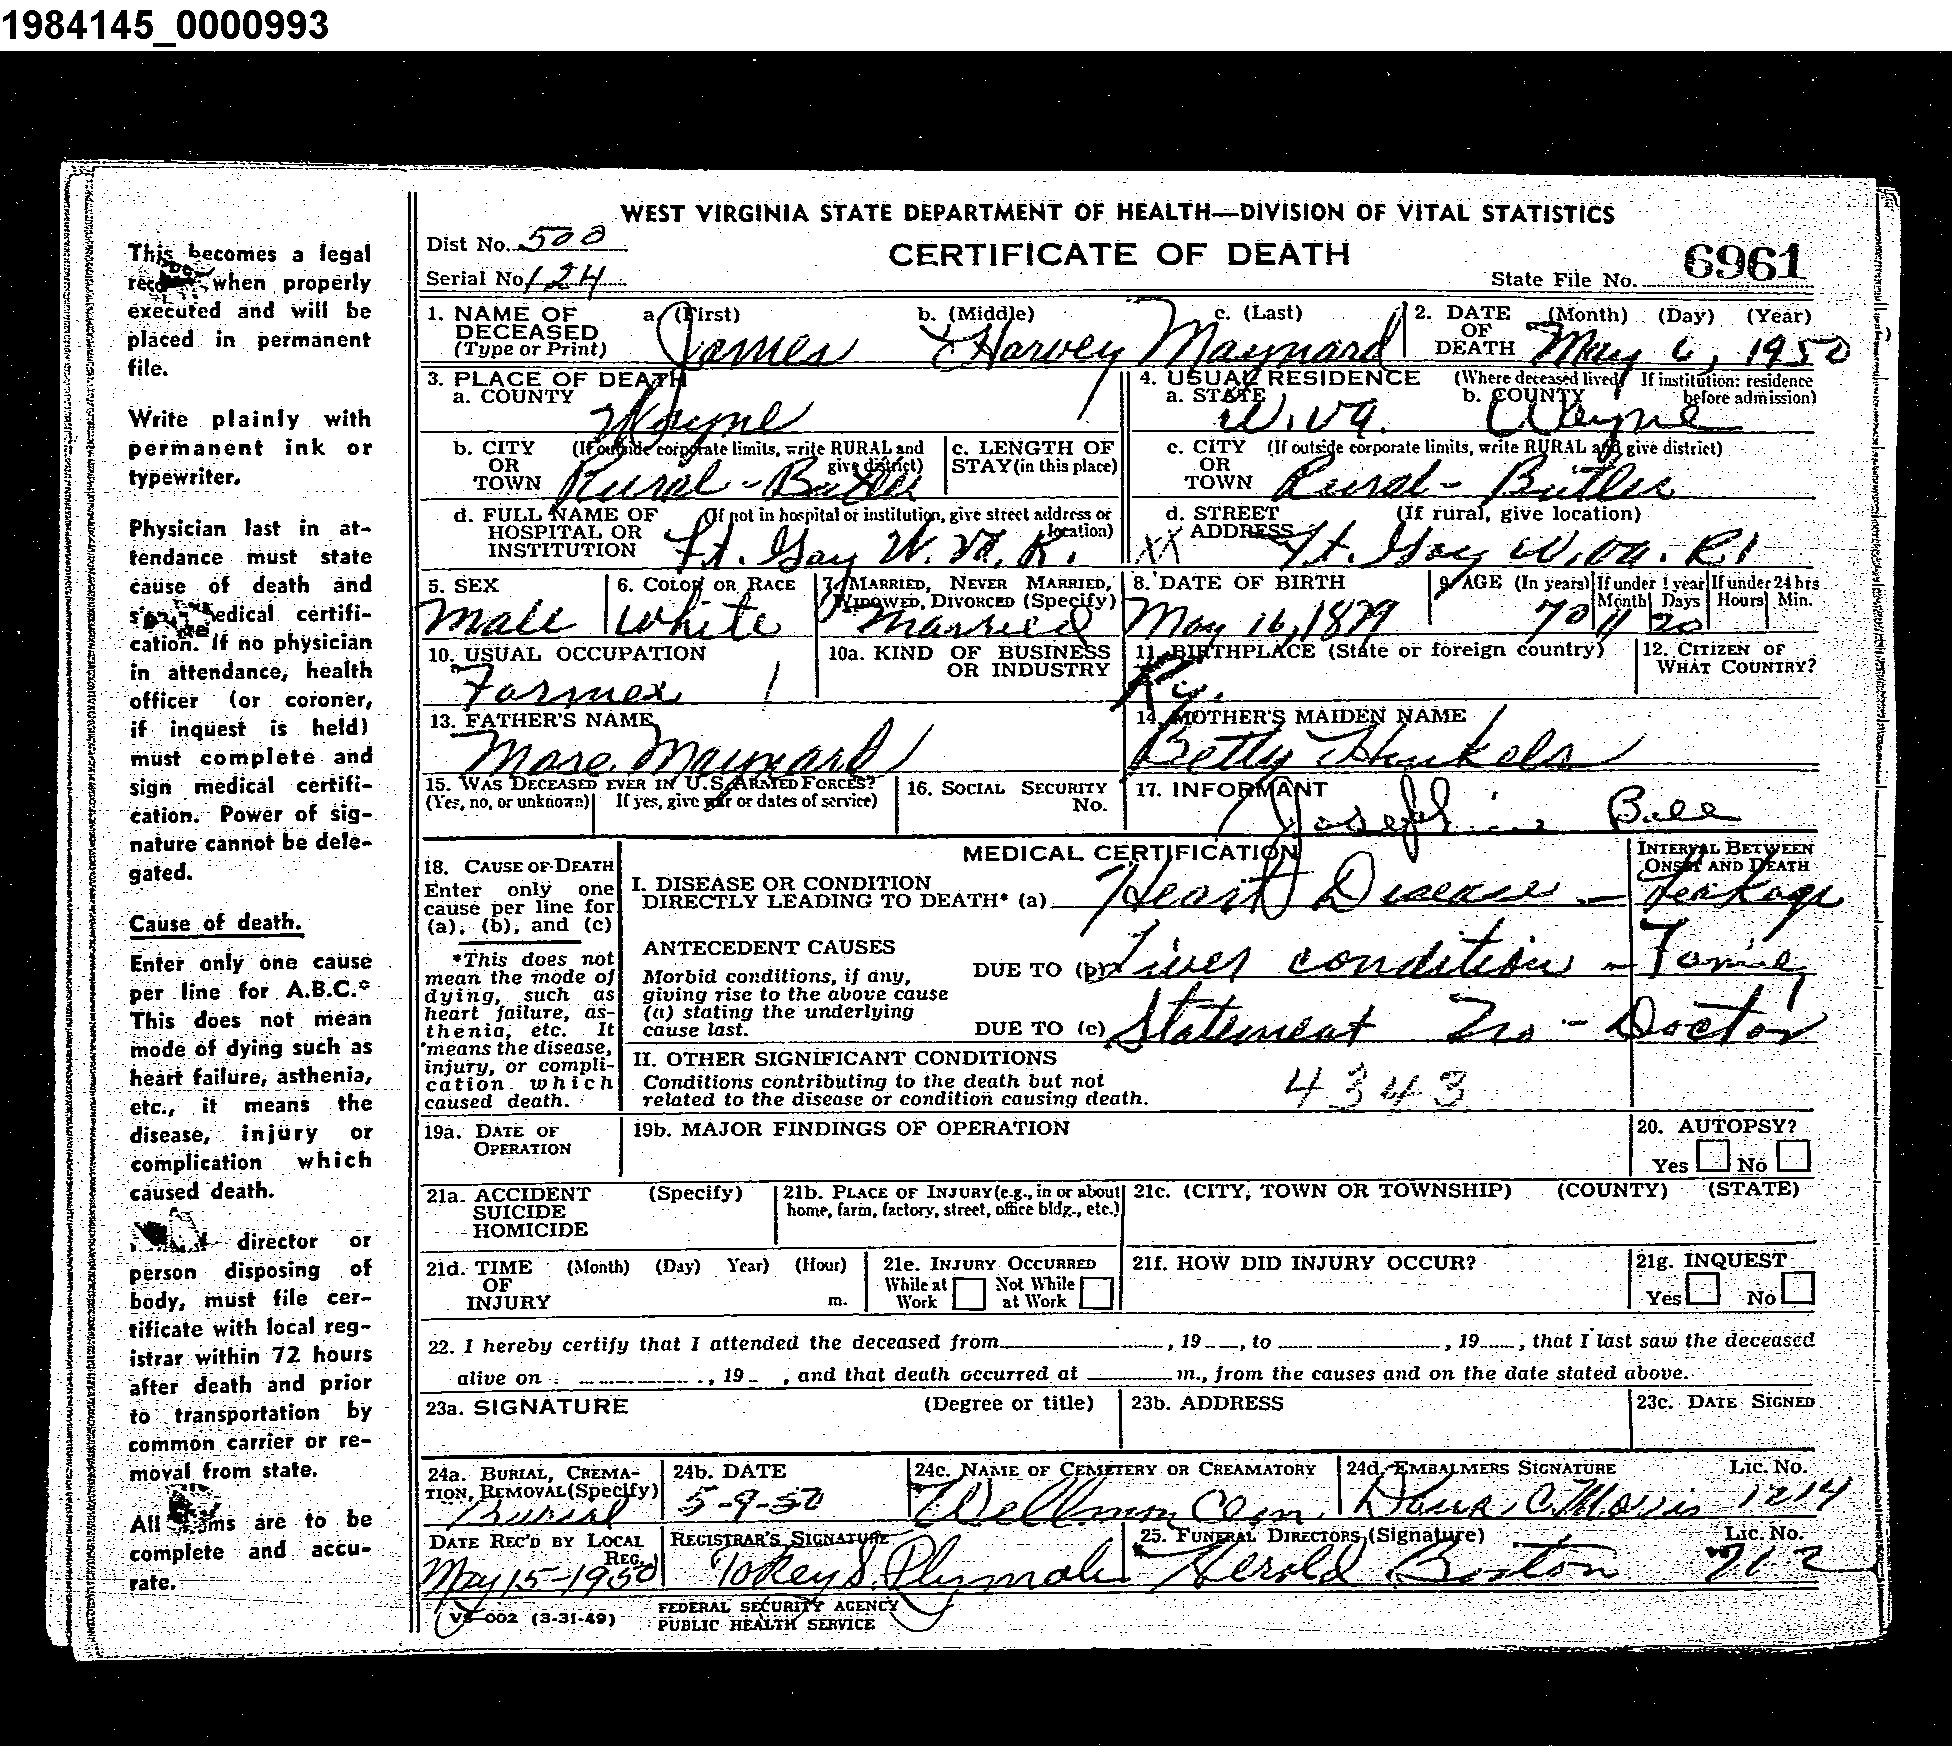 1984145_0000993
This becomes a legal
when properly
executed and will be
placed in permanent
file.
Write plainly with
permanent ink or
typewriter.
Physician last in at-
tendance must state
cause of death and
medical certifi-
cation. If no physician
in attendance, health
officer (or coroner,
if inquest is held)
must complete and
sign medical certifi-
cation. Power of sig-
nature cannot be dele-
gated.
Cause of death.
Enter only one cause
per line for A.B.C.*
This does not mean
mode of dying such as
heart failure, asthenia,
etc., it means the
disease, injury or
complication which
caused death.
director or
person disposing of
body, must file cer-
tificate with local reg-
istrar within 72 hours
after death and prior
to transportation by
common carrier or re-
moval from state.
All are to be
complete and accu-
rate.
WEST VIRGINIA STATE DEPARTMENT OF HEALTH—DIVISION OF VITAL STATISTICS
Dist No. 500
CERTIFICATE OF DEATH
Serial No 124
State File No. 6961
1. NAME OF DECEASED (Type or Print) a. (First) b. (Middle) c. (Last)
James Harvey Maynard
2. DATE OF DEATH (Month) (Day) (Year)
May 6, 1950
3. PLACE OF DEATH
a. COUNTY
Wayne
4. USUAL RESIDENCE (Where deceased lived. If institution: residence before admission)
a. STATE W. Va. b. COUNTY Wayne
b. CITY OR TOWN (If outside corporate limits, write RURAL and give district)
Rural - Butler
c. LENGTH OF STAY (in this place)
c. CITY OR TOWN (If outside corporate limits, write RURAL and give district)
Rural - Butler
d. FULL NAME OF HOSPITAL OR INSTITUTION (If not in hospital or institution, give street address or location)
Ft. Gay W. Va. R.
d. STREET ADDRESS (If rural, give location)
XX Ft. Gay W. Va. R1
5. SEX
Male
6. COLOR OR RACE
White
7. MARRIED, NEVER MARRIED, WIDOWED, DIVORCED (Specify)
Married
8. DATE OF BIRTH
May 16, 1879
9. AGE (In years) If under 1 year Month Days If under 24 hrs Hours Min.
70 11 20
10. USUAL OCCUPATION
Farmer
10a. KIND OF BUSINESS OR INDUSTRY
11. BIRTHPLACE (State or foreign country)
Ky.
12. CITIZEN OF WHAT COUNTRY?
13. FATHER'S NAME
Mose Maynard
14. MOTHER'S MAIDEN NAME
Betty
15. WAS DECEASED EVER IN U.S. ARMED FORCES?
(Yes, no, or unknown) If yes, give war or dates of service)
16. SOCIAL SECURITY No.
17. INFORMANT
Josephine
18. CAUSE OF DEATH
Enter only one
cause per line for
(a), (b), and (c)
*This does not
mean the mode of
dying, such as
heart failure, as-
thenia, etc. It
means the disease,
injury, or compli-
cation which
caused death.
MEDICAL CERTIFICATION
INTERVAL BETWEEN ONSET AND DEATH
I. DISEASE OR CONDITION
DIRECTLY LEADING TO DEATH* (a) Heart Disease - Leakage
ANTECEDENT CAUSES
Morbid conditions, if any,
giving rise to the above cause
(a) stating the underlying
cause last.
DUE TO (b) Liver condition -
DUE TO (c) Statement No - Doctor
II. OTHER SIGNIFICANT CONDITIONS
Conditions contributing to the death but not
related to the disease or condition causing death.
4343
19a. DATE OF OPERATION
19b. MAJOR FINDINGS OF OPERATION
20. AUTOPSY?
Yes No
21a. ACCIDENT SUICIDE HOMICIDE (Specify)
21b. PLACE OF INJURY (e.g., in or about home, farm, factory, street, office bldg., etc.)
21c. (CITY, TOWN OR TOWNSHIP) (COUNTY) (STATE)
21d. TIME OF INJURY (Month) (Day) Year) (Hour) m.
21e. INJURY OCCURRED
While at Work Not While at Work
21f. HOW DID INJURY OCCUR?
21g. INQUEST
Yes No
22. I hereby certify that I attended the deceased from , 19 , to , 19 , that I last saw the deceased
alive on , 19 , and that death occurred at m., from the causes and on the date stated above.
23a. SIGNATURE (Degree or title)
23b. ADDRESS
23c. DATE SIGNED
24a. BURIAL, CREMATION, REMOVAL (Specify)
Burial
24b. DATE
5-9-50
24c. NAME OF CEMETERY OR CREAMATORY
Wellmon Cem.
24d. EMBALMERS SIGNATURE Lic. No.
C. Morris 1214
DATE REC'D BY LOCAL REG.
May 15-1950
REGISTRAR'S SIGNATURE
Tokey S. Plymale
25. FUNERAL DIRECTORS (Signature) Lic. No.
Herold Boston 712
VS-002 (3-31-49)
FEDERAL SECURITY AGENCY
PUBLIC HEALTH SERVICE